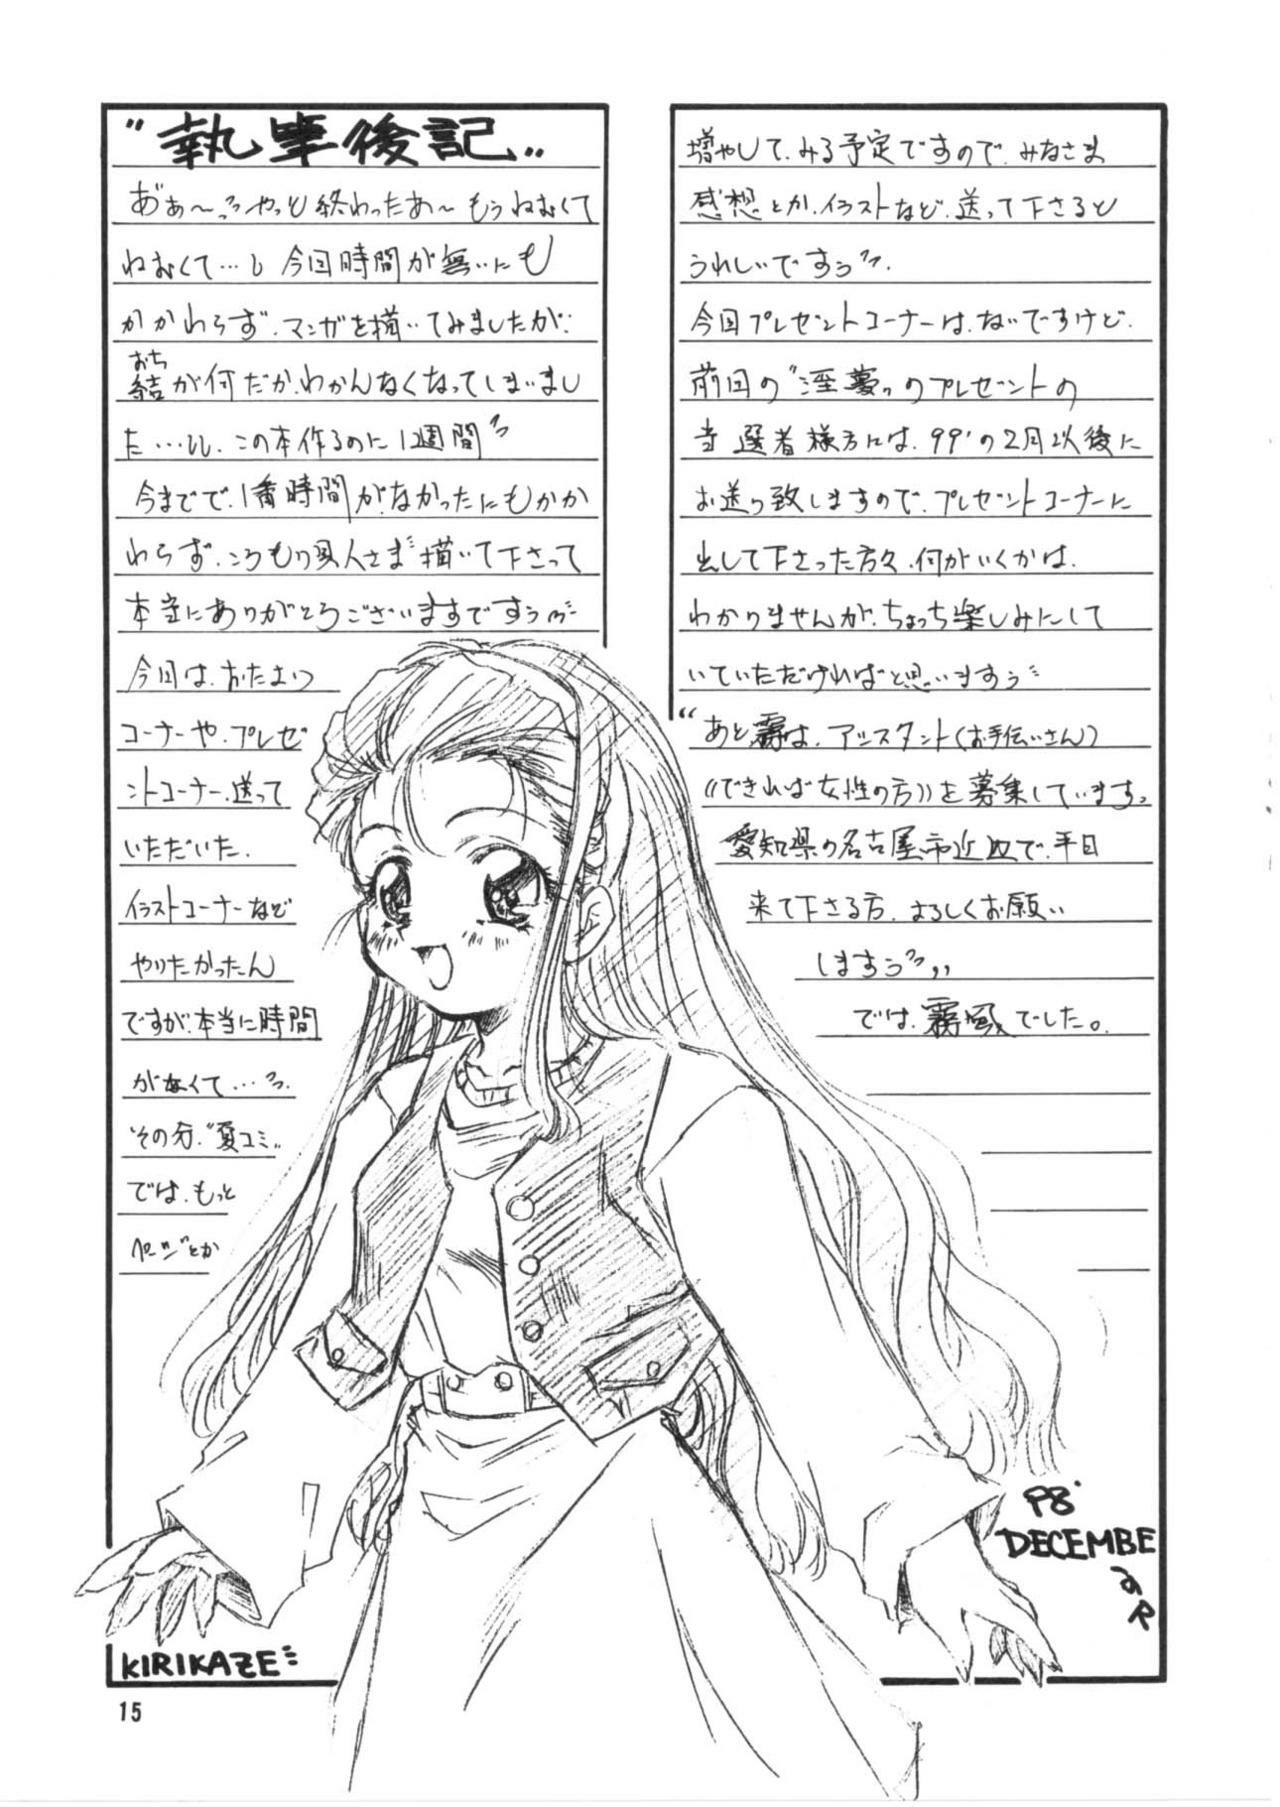 "執筆後記"
あ゛ぁ～っやっと終わったあ～もうねむくて
ねむくて…し 今回時間が無いにも
かかわらず、マンガを描いてみましたが、
結が何だか、わかんなくなってしまいまし
おち
た…しし、この本作るのに1週間
今までで、1番時間が、なかったにもかか
わらず、ころもり兵人さま描いて下さって
本当にありがとうございますですぅ
今回は、おたより
コーナーや、プレゼ
ントコーナー、送って
いただいた、
イラストコーナーなど
やりたかったん
ですが、本当に時間
がなくて…っ、
その分、"夏コミ"
では、もっと
ページとか
増やして、みる予定ですので、みなさま
感想とか、イラストなど、送って下さると
うれしいですぅ。
今回プレゼントコーナーは、ないですけど、
前回の"淫夢"のプレゼントの
当選者様方には、99'の2月以後に
お送り致しますので、プレゼントコーナーに
出して下さった方々、何がいくかは、
わかりませんが、ちょっち楽しみにして
いていただければと思いますぅ
"あと霧は、アシスタント(お手伝いさん)
((できれば女性の方))を募集しています。
愛知県の名古屋市近辺で、平日
来て下さる方、よろしくお願い
しますぅ"
では、霧風でした。
98'
DECEMBE
R
KIRIKAZE
15